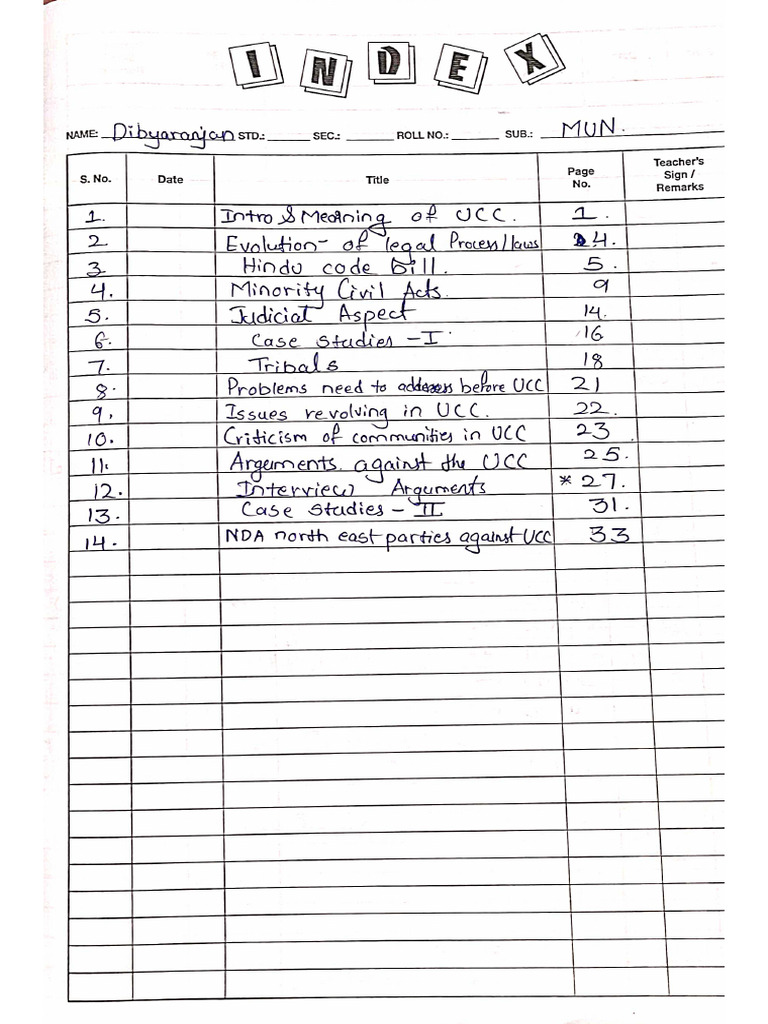 INDEX
NAME: Dibyaranjan STD.: SEC.: ROLL NO.: SUB.: MUN.
S. No. Date Title Page No. Teacher's Sign / Remarks
1. Intro & Meaning of UCC. 1.
2 Evolution of legal Process/laws 4.
3 Hindu code bill. 5.
4. Minority Civil Acts. 9
5. Judicial Aspect 14.
6. Case Studies - I 16
7. Tribals 18
8. Problems need to address before UCC 21
9. Issues revolving in UCC. 22.
10. Criticism of communities in UCC 23
11. Arguments against the UCC 25.
12. Interview Arguments * 27.
13. Case studies - II 31.
14. NDA north east parties against UCC 33